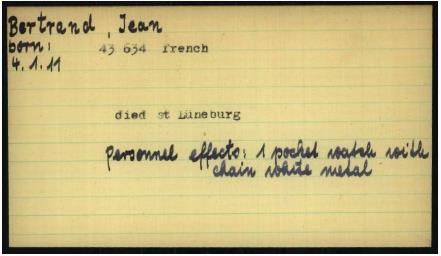 Bertrand, Jean
born: 43 634 french
4.1.11
died st Lüneburg
personnel effects: 1 pocket watch with
chain white metal